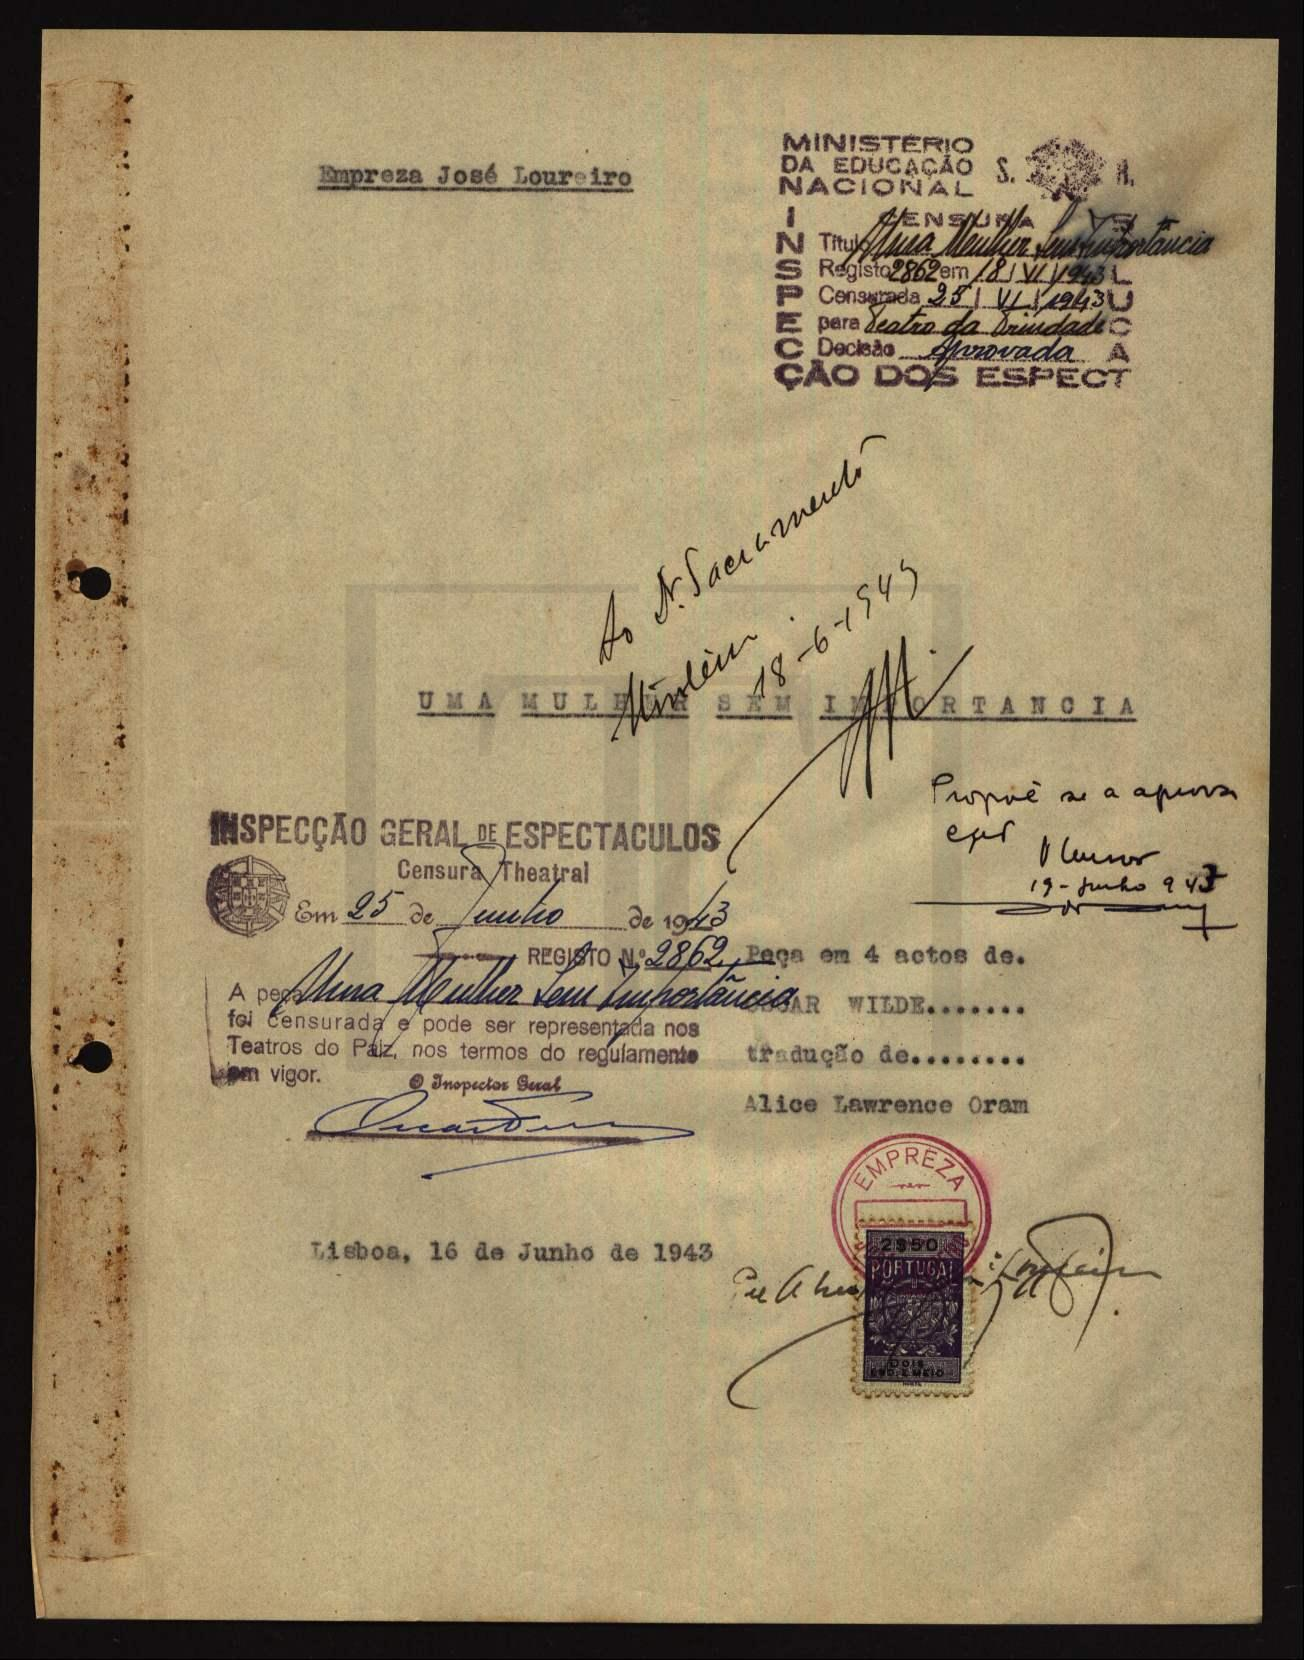 Empreza José Loureiro
MINISTÉRIO
DA EDUCAÇÃO
NACIONAL
S. R.
INSPECÇÃO DOS ESPECTACUL
CENSURA
Titulo Uma Mulher Sem Importância
Registo 2862 em 18 / VI / 1943
Censurada 25 / VI / 1943
para Teatro da Trindade
Decisão Aprovada
Ao Dr. Sacramento
18-6-1943
UMA MULHER SEM IMPORTANCIA
Propõe se a aprova
19-Junho 943
INSPECÇÃO GERAL DE ESPECTACULOS
Censura Theatral
Em 25 de Junho de 1943
REGISTO N.º 2862
A peça Uma Mulher Sem Importância
foi censurada e pode ser representada nos
Teatros do Paiz, nos termos do regulamento
em vigor.
O Inspector Geral
Peça em 4 actos de.
OSCAR WILDE.......
tradução de........
Alice Lawrence Oram
Lisboa, 16 de Junho de 1943
EMPREZA
2$50
PORTUGAL
DOIS
ESC. E MEIO